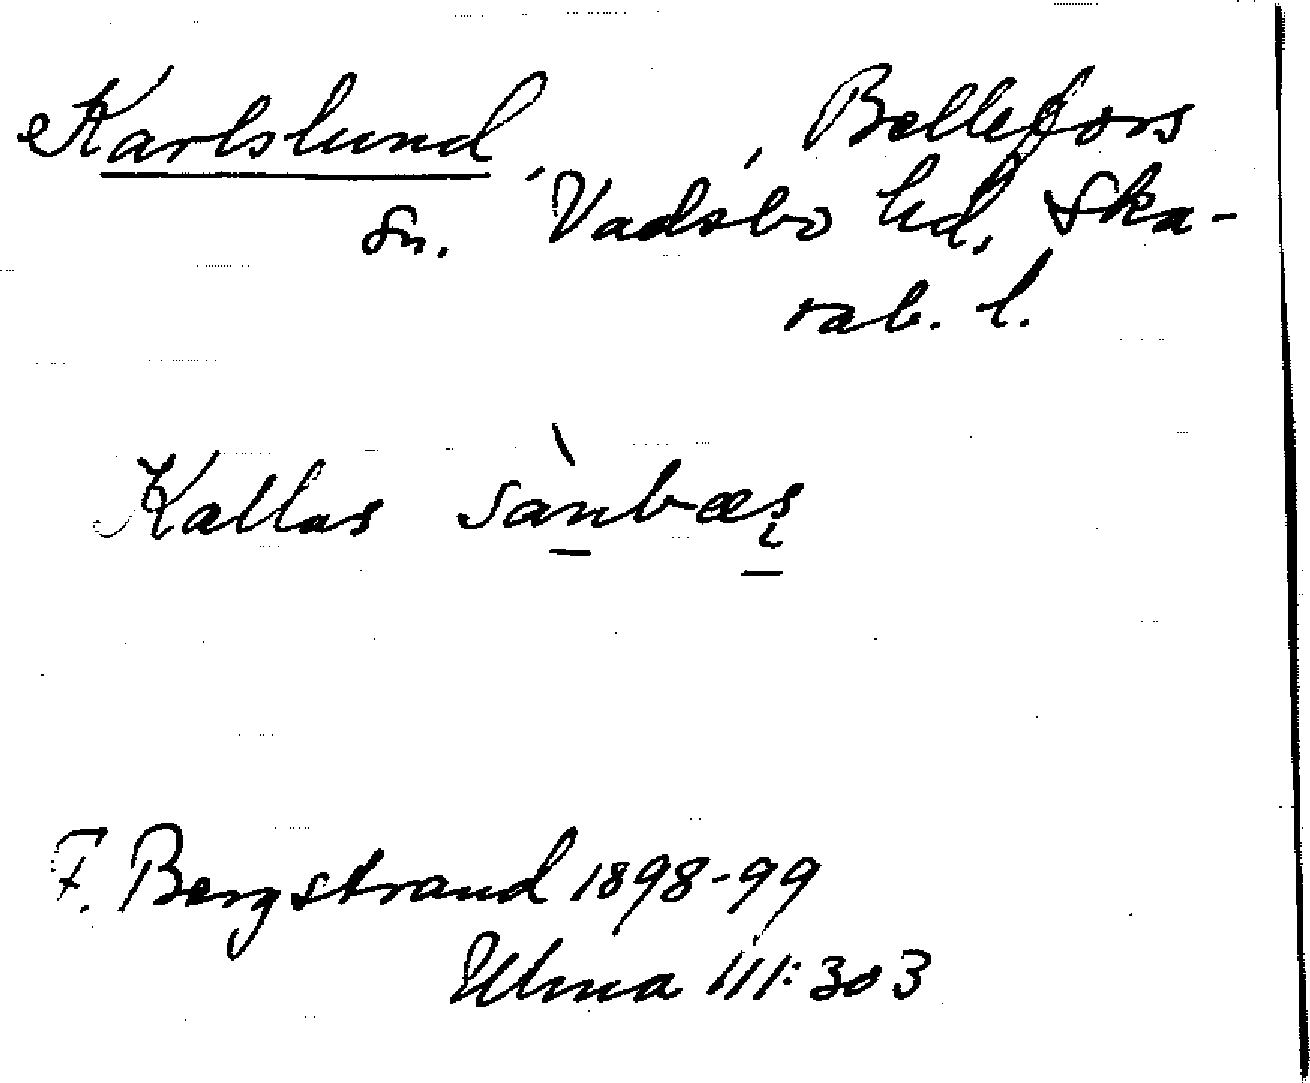 Karlslund, , Bellefors
sn. Vadsbo hd, Ska-
rab. l.
Kallas sànbæs
F. Bergstrand 1898-99
Ulma 111:303